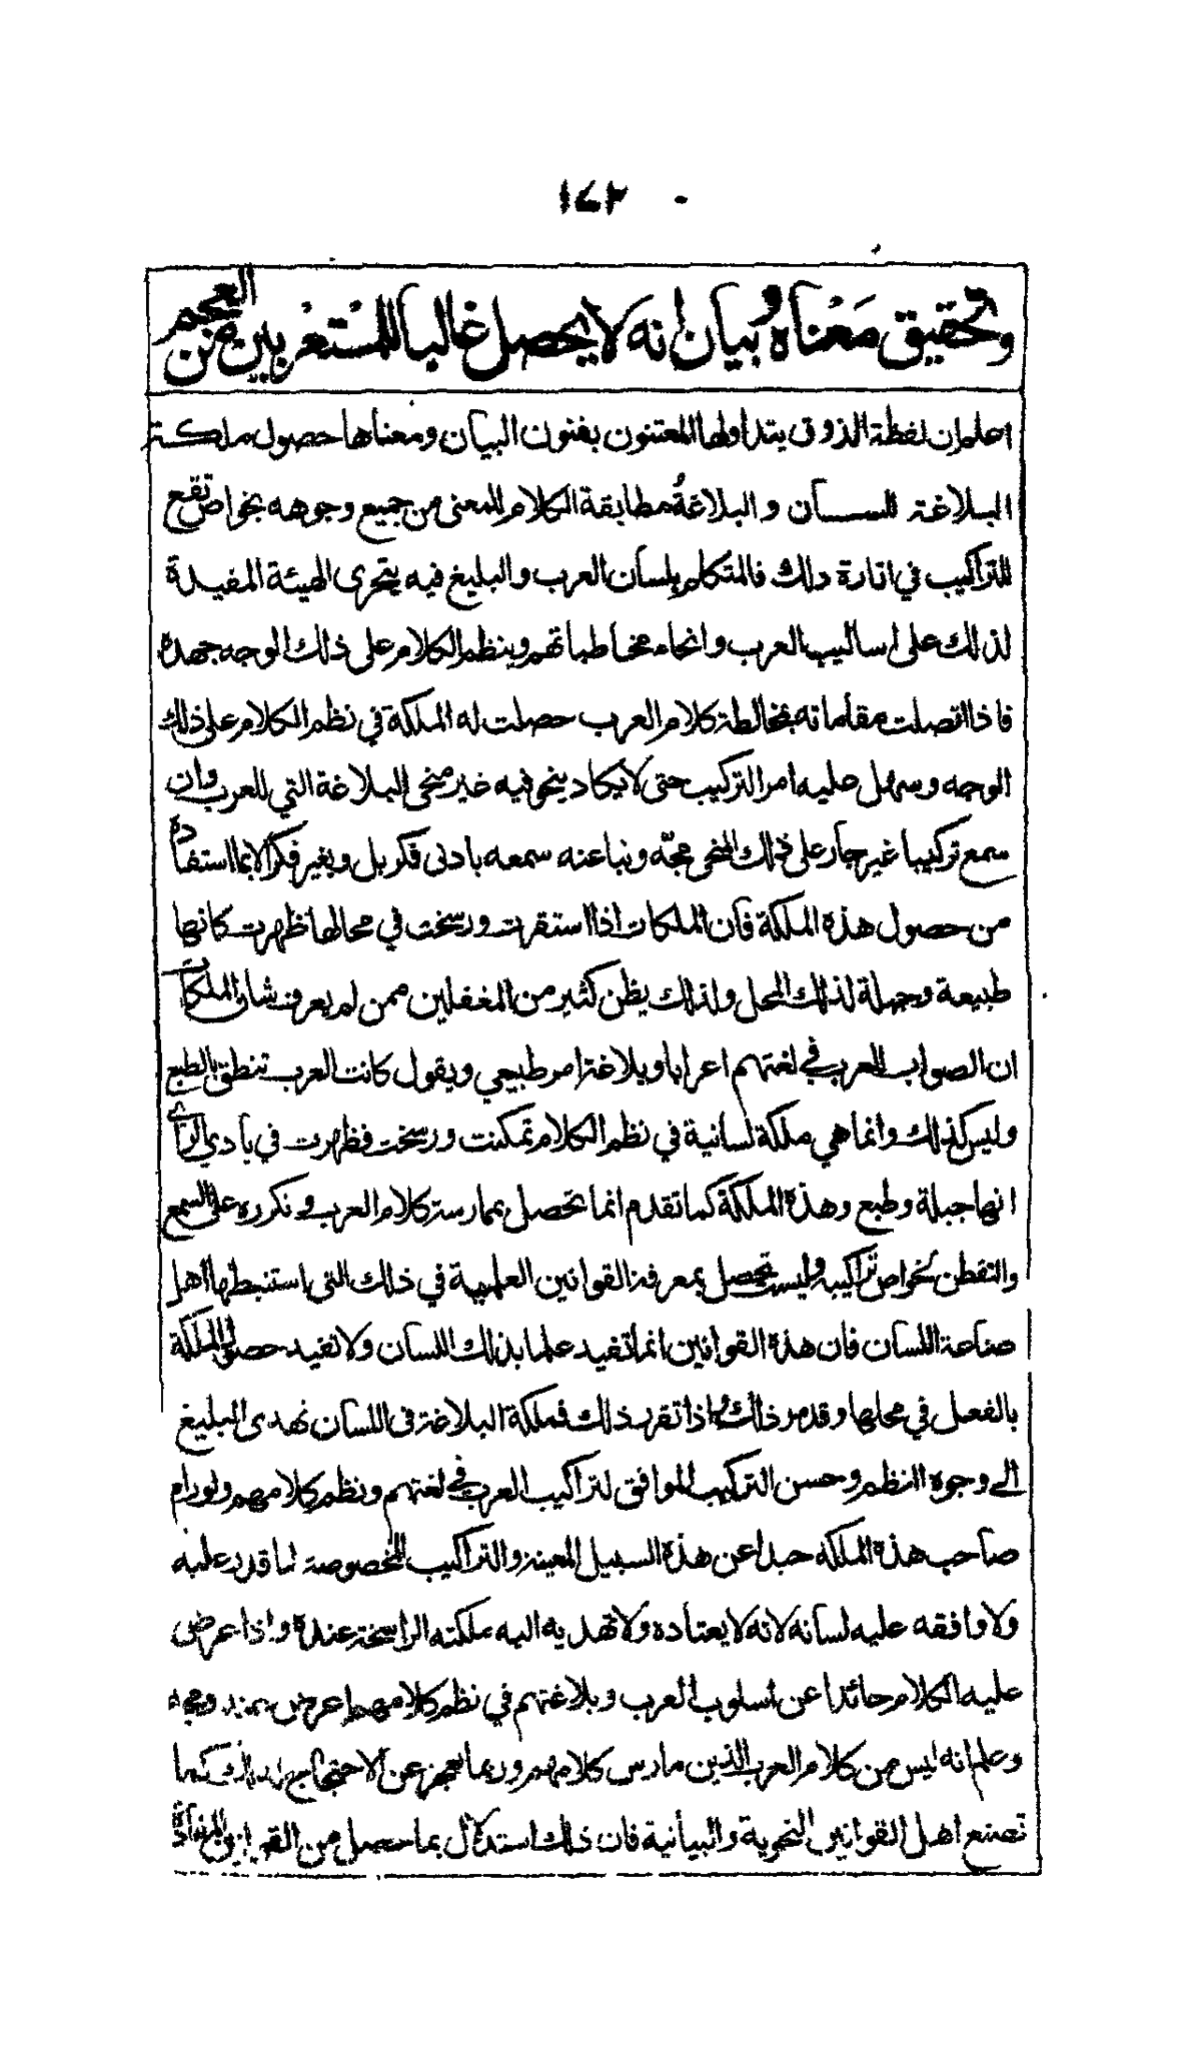 ١٤٢
وتحقيق معناه وبيان انه لا يحصل غالبا للمستعربين من العجم
اعلم ان لفظة الذوق يتداولها المعتنون بفنون البيان ومعناها حصول ملكة
البلاغة للسان والبلاغة مطابقة الكلام للمعنى من جميع وجوهه بخواص تقع
للتراكيب في افادة ذلك فالمتكلم بلسان العرب والبليغ فيه يتحرى الهيئة المفيدة
لذلك على اساليب العرب وانحاء مخاطباتهم وينظم الكلام على ذلك الوجه جهده
فاذا اتصلت مقاماته بمخالطة كلام العرب حصلت له الملكة في نظم الكلام على ذلك
الوجه وسهل عليه امر التركيب حتى لا يكاد ينحو فيه غير منحى البلاغة التي للعرب وان
سمع تركيبا غير جار على ذلك المنحى مجّه ونبا عنه سمعه بادنى فكر بل وبغير فكر الا بما استفاده
من حصول هذه الملكة فان الملكات اذا استقرت ورسخت في محالها ظهرت كانها
طبيعة وجبلة لذلك المحل ولذلك يظن كثير من المغفلين ممن لم يعرف شان الملكات
ان الصواب للعرب في لغتهم اعرابا وبلاغة امر طبيعي ويقول كانت العرب تنطق بالطبع
وليس كذلك وانما هي ملكة لسانية في نظم الكلام تمكنت ورسخت فظهرت في بادي الراي
انها جبلة وطبع وهذه الملكة كما تقدم انما تحصل بممارسة كلام العرب وتكرره على السمع
والتفطن لخواص تراكيبه وليست تحصل بمعرفة القوانين العلمية في ذلك التي استنبطها اهل
صناعة اللسان فان هذه القوانين انما تفيد علما بذلك اللسان ولا تفيد حصول الملكة
بالفعل في محلها وقد مر ذلك واذا تقرر ذلك فملكة البلاغة في اللسان تهدى البليغ
الى وجوه النظم وحسن التركيب الموافق لتراكيب العرب في لغتهم ونظم كلامهم ولو رام
صاحب هذه الملكة حيدا عن هذه السبيل المعينة والتراكيب المخصوصة لما قدر عليه
ولا وافقه عليه لسانه لانه لا يعتاده ولا تهديه اليه ملكته الراسخة عنده واذا عرض
عليه الكلام حائدا عن اسلوب العرب وبلاغتهم في نظم كلامهم اعرض عنه ومجه
وعلم انه ليس من كلام العرب الذين مارس كلامهم وربما يعجز عن الاحتجاج لذلك كما
تصنع اهل القوانين النحوية والبيانية فان ذلك استدلال بما حصل من القوانين المفادة